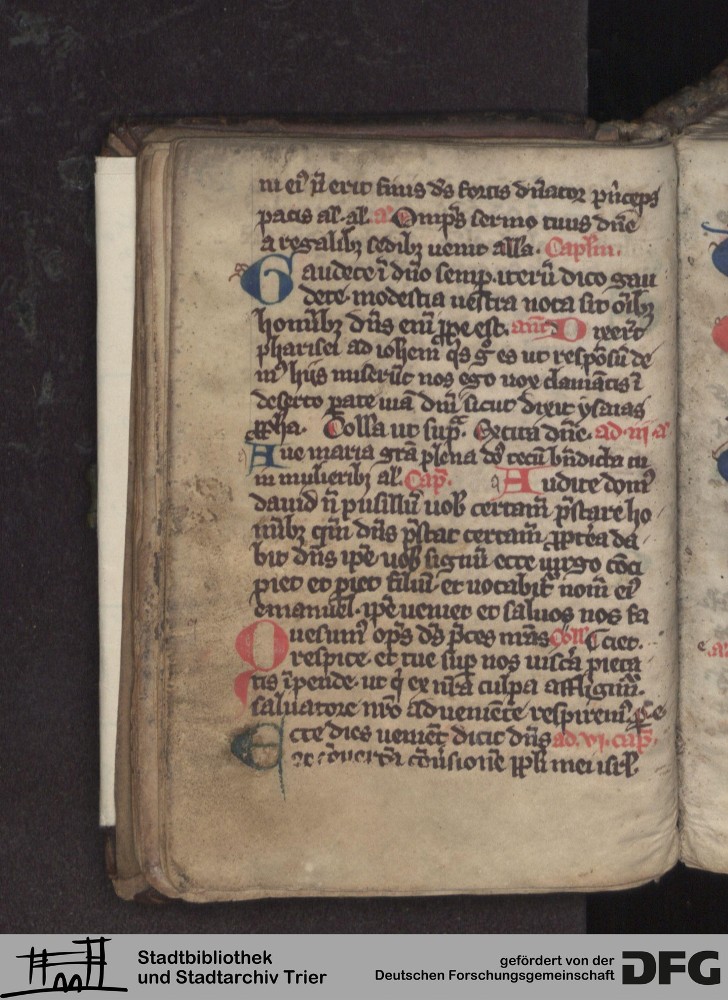 ni ei' n̄ erit finis d's fortis dn̄ator p'nceps
pacis al'. al'. a Omp̄s sermo tuus dn̄e
a regalib; sedib; uenit alla. Caplm.
Gaudete ī dn̄o semp. iterū dico gau
dete. modestia uestra nota sit oīb;
homīb; dn̄s eni ꝓpe est. ant Dixerūt
pharisei ad iohem q's g° es ut respōsū de
m' hiis miserūt nos ego uox clamātis ī
deserto parate uiā dn̄i sicut dixit ysaias
ꝓpha. Colla ut sup̄. Excita dn̄e. ad .iii. a
Aue maria grā plena d's tecū bn̄dicta tu
in mulierib; al'. Cap'. Audite dom'
dauid n̄ pusillū uob' certam̄ p̄stare ho
mīb; quī dn̄s p̄stat certam̄ ꝓpt'ea da
bit dn̄s ip̄e uob' signū ecce uirgo cōci
piet et p̄iet filiū et uocabit' nom̄ ei'
emanuel. ip̄e ueniet et saluos nos fa
Quesum' op̄s d's p̄ces nr̄as Coll' ciet.
respice. et tue sup̄ nos uiscā pieta
tis īpende. ut q' ex nr̄a culpa affligim̄.
saluatore nr̄o adueniēte respirem'. p.
Ecce dies ueniēt dicit dn̄s ad .vi. cap'.
cōuertā cōuersionē ꝓpli mei isrl'
Stadtbibliothek
und Stadtarchiv Trier
gefördert von der
Deutschen Forschungsgemeinschaft
DFG